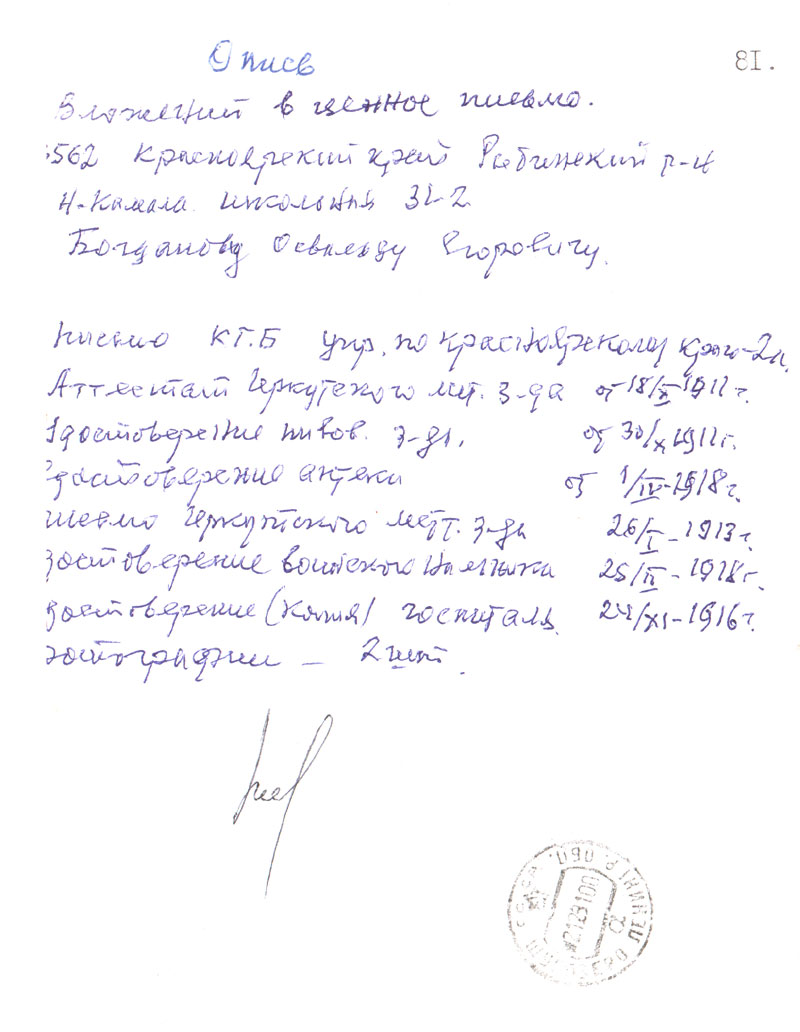 Опись
81.
Вложений в ценное письмо.
562 Красноярский край Рыбинский р-н
Н-Камала Школьная 31-2
Богданову Освальду Егоровичу.
письмо КГБ упр. по Красноярскому краю-2л.
Аттестат Черкутского мет. з-да от 18/X-1911 г.
достоверение пивов. з-да. от 30/X-1911г.
достоверение аптеки от 1/IV-1918г.
письмо Черкутского мет. з-да 26/I-1913г.
достоверение воинского 25/II-1918г.
достоверение (копия) госпиталь 24/XI-1916г.
фотографии - 2 шт.
СССР